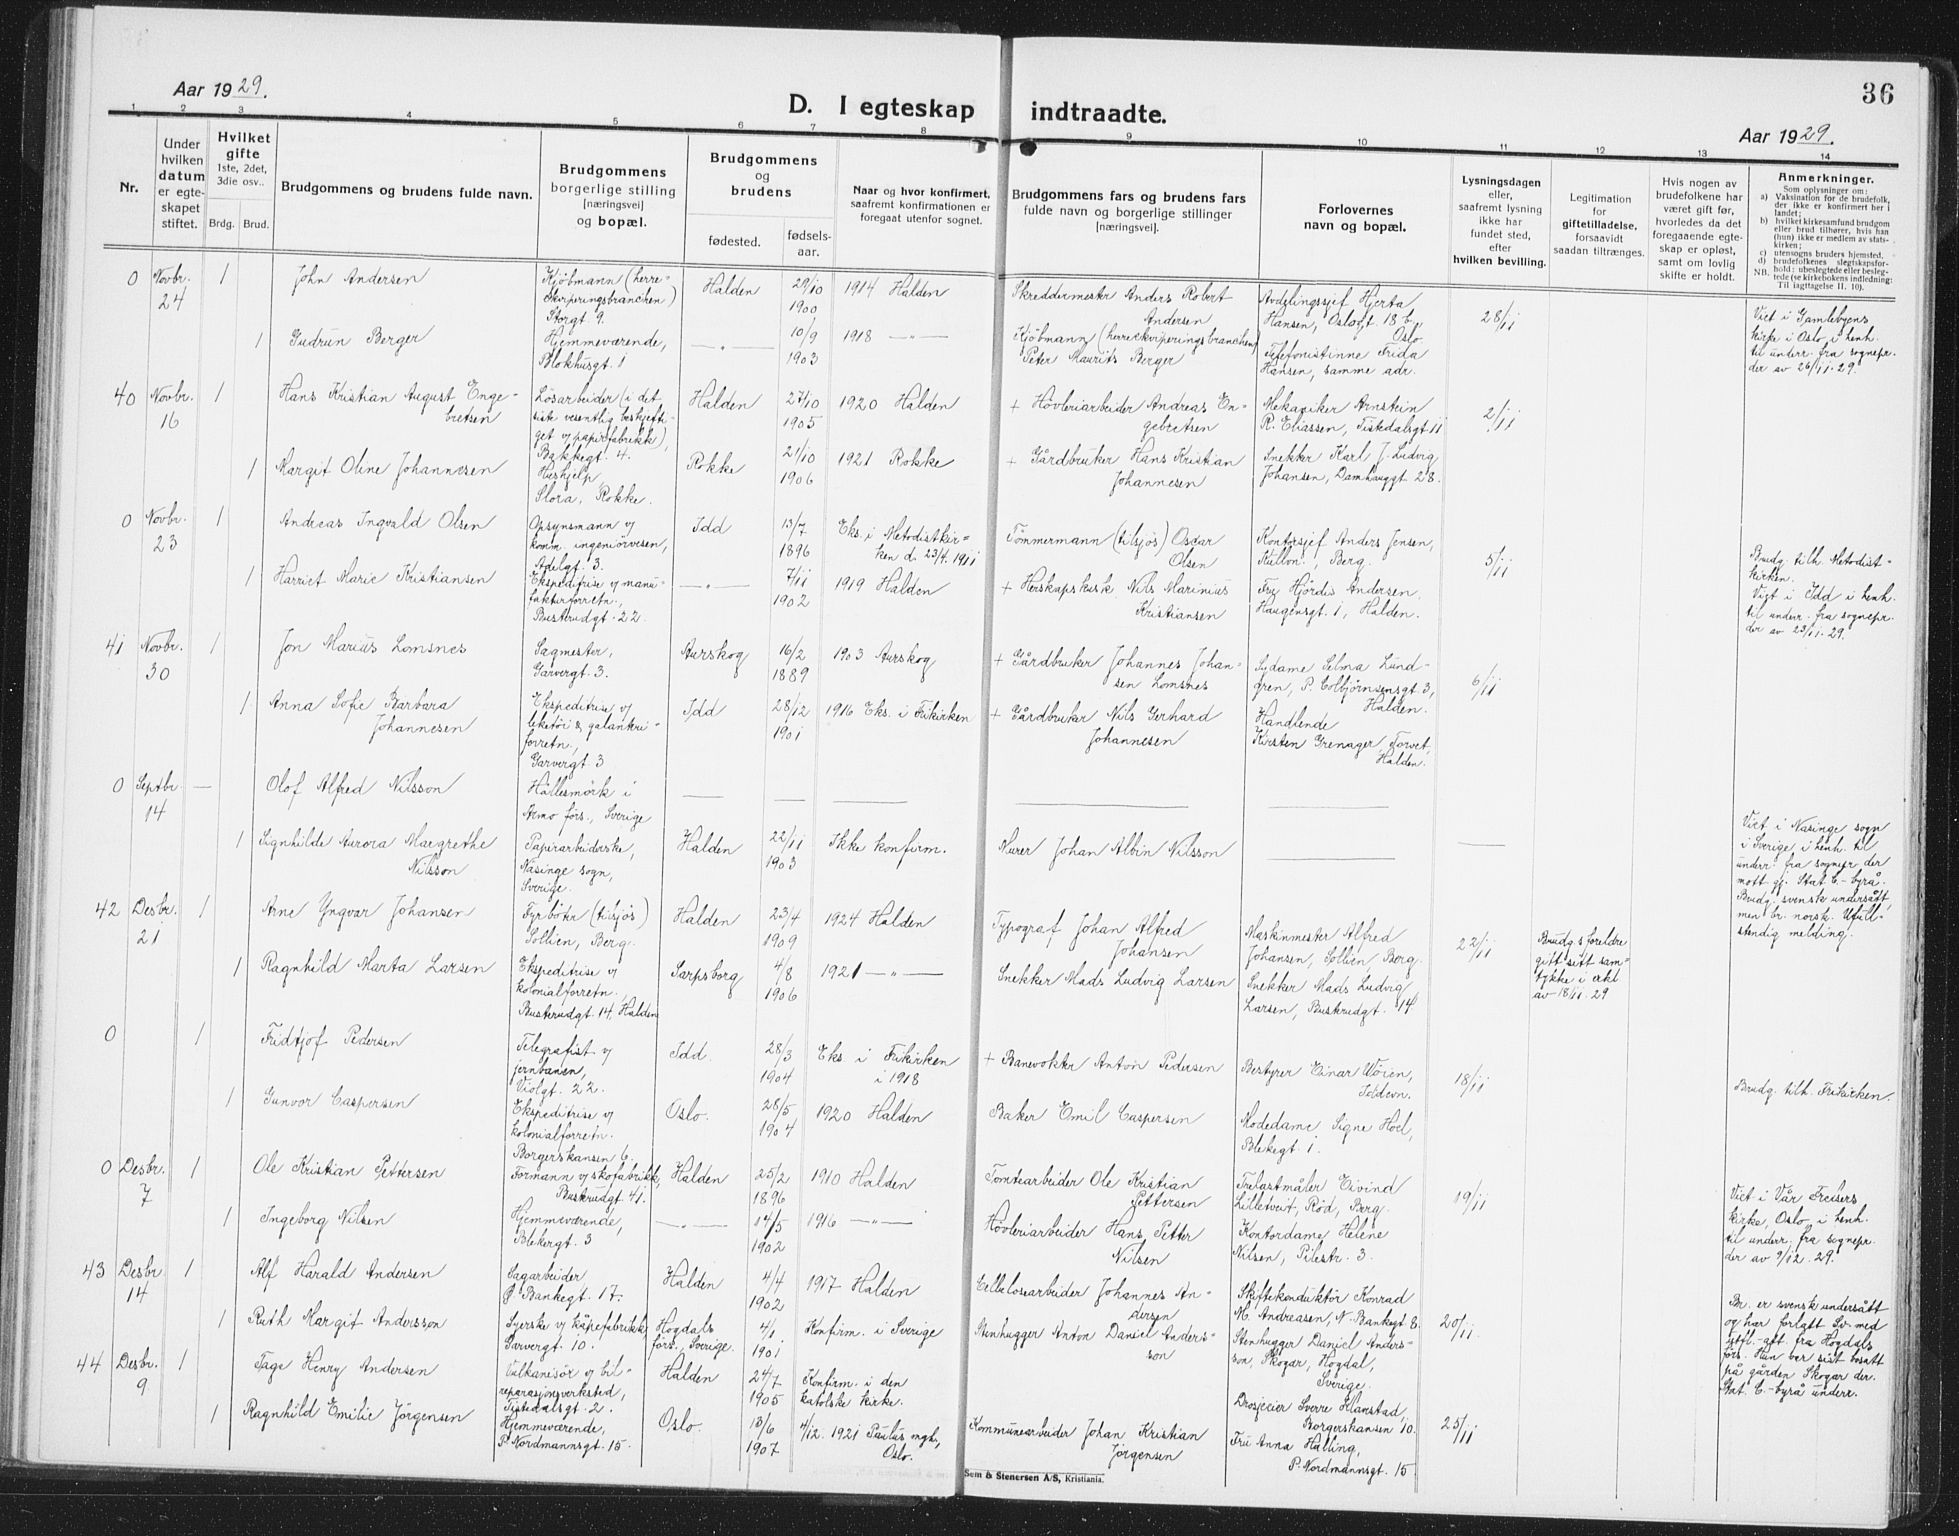 Aar 1929.
D. I egteskap indtraadte.
36
Aar 1929.
1 2 3 4 5 6 7 8 9 10 11 12 13 14
Nr.
Under
hvilken
datum
er egte-
skapet
stiftet.
Hvilket
gifte
1ste, 2det,
3die osv..
Brdg. Brud.
Brudgommens og brudens fulde navn.
Brudgommens
borgerlige stilling
[næringsvei]
og bopæl.
Brudgommens
og
brudens
fødested.
fødsels-
aar.
Naar og hvor konfirmert,
saafremt konfirmationen er
foregaat utenfor sognet.
Brudgommens fars og brudens fars
fulde navn og borgerlige stillinger
[næringsvei].
Forlovernes
navn og bopæl.
Lysningsdagen
eller,
saafremt lysning
ikke har
fundet sted,
efter
hvilken bevilling.
Legitimation
for
giftetilladelse,
forsaavidt
saadan tiltrænges.
Hvis nogen av
brudefolkene har
været gift før,
hvorledes da det
foregaaende egte-
skap er opløst,
samt om lovlig
skifte er holdt.
Anmerkninger.
Som oplysninger om:
a) Vaksination for de brudefolk,
der ikke er konfirmert her i
landet;
b) hvilket kirkesamfund brudgom
eller brud tilhører, hvis han
(hun) ikke er medlem av stats-
kirken;
c) utensogns bruders hjemsted.
d) brudefolkenes slegtskapsfor-
hold: ubeslegtede eller besleg-
tede (se kirkebokens indledning:
NB. Til iagttagelse II. 10).
0
Novbr.
24
1
John Andersen
Kjöbmann (herre-
ekviperingsbranchen)
Storgt. 9.
Halden
29/10
1900
1914 Halden
Skreddermester Anders Robert
Andersen
Avdelingssjef Hjerta
Hansen, Oslogt. 18 b,
Oslo
28/11
Viet i Gamlebyens
kirke i Oslo i henh.
til underr. fra sognepr.
der av 26/11.29.
1
Gudrun Berger
Hjemmeværende,
Blokhusgt. 1
— „ —
10/9
1903
1918 — „ —
Kjöbmann (herreekviperingsbranchen)
Peter Maurits Berger
Telefonistinne Frida
Hansen, samme adr.
40
Novbr.
16
1
Hans Kristian August Enge-
bretsen
Lösarbeider (i det
siste vesentlig beskjefti-
get v/ papirfabrikk),
Bakkegt. 4.
Halden
27/10
1905
1920 Halden
+ Hövleriarbeider Andreas En-
gebretsen
Mekaniker Arnstein
R. Eliassen, Tistedalsgt 11
2/11
1
Margit Oline Johannesen
Hushjelp,
Slora, Rokke.
Rokke
21/10
1906
1921 Rokke
+ Gårdbruker Hans Kristian
Johannesen
Snekker Karl J. Ludvig
Johansen, Damhauggt 28.
0
Novbr.
23
1
Andreas Ingvald Olsen
Opsynsmann v/
komm. ingeniörvesen,
Adelgt 3.
Idd
13/7
1896
Eks. i Metodistkir-
ken d. 23/4. 1911
Tömmermann (tilsjös) Oscar
Olsen
Kontorsjef Anders Jensen,
Kullon., Berg.
5/11
Brudg. tilh. Metodist-
kirken.
Viet i Idd i henh.
til underr. fra sognepr.
der av 23/11.29.
1
Harriet Marie Kristiansen
Ekspeditrise v/ manu-
fakturforretn.,
Busterudgt. 22.
— „ —
7/11
1902
1919 Halden
+ Herskapskusk Nils Marinius
Kristiansen
Fru Hjördis Andersen,
Haugensgt. 1, Halden.
41
Novbr.
30
1
Jon Marius Lomsnes
Sagmester,
Garvergt. 3.
Aurskog
16/2
1889
1903 Aurskog
+ Gårdbruker Johannes Johan-
sen Lomsnes
Sydame Selma Lund-
gren, P. Colbjörnsensgt. 3,
Halden.
6/11
1
Anna Sofie Barbara
Johannesen
Ekspeditrise v/
leketöi & galanteri-
forretn.,
Garvergt. 3
Idd
28/12
1901
1916 Eks. i Frikirken
+ Gårdbruker Nils Gerhard
Johannesen
Handlende
Kirsten Grenager, Torvet,
Halden.
0
Septbr.
14
—
Olof Alfred Nilsson
Hällesmörk i
Ärmo förs., Sverige
Viet i Nasinge sogn
i Sverige, i henh. til
underr. fra sognepr. der
mott. gj. Stat. C.-byrå.
Brudg. svensk undersått,
men br. norsk. Ufull-
stendig melding.
1
Signhilde Aurora Margrethe
Nilsson
Papirarbeiderske,
Näsinge sogn,
Sverige.
Halden
22/11
1903
Ikke konfirm.
Murer Johan Albin Nilsson
42
Desbr.
21
1
Arne Yngvar Johansen
Fyrböter (tilsjös)
Sollien, Berg.
Halden
23/4
1909
1924 Halden
Typograf Johan Alfred
Johansen
Maskinmester Alfred
Johansen, Sollien, Berg.
22/11
Brudg.s foreldre
gitt sitt sam-
tykke i erkl.
av 18/11.29
1
Ragnhild Marta Larsen
Ekspeditrise v/
kolonialforretn.,
Busterudgt. 14, Halden
Sarpsborg
4/8
1906
1921 — „ —
Snekker Mads Ludvig Larsen
Snekker Mads Ludvig
Larsen, Busterudgt. 14
0
1
Fridtjof Pedersen
Telegrafist v/
jernbanen,
Violgt. 22.
Idd.
28/3
1904
Eks. i Frikirken
i 1918
+ Banevokter Anton Pedersen
Bestyrer Einar Wöien,
18/11
Brudg. tilh. Frikirken.
1
Gunvor Caspersen
Ekspeditrise v/
kolonialforretn.
Borgerskansen 6.
Oslo.
28/5
1904
1920 Halden
Baker Emil Caspersen
Modedame Signe Hoel,
Blekegt. 1.
0
Desbr.
7
1
Ole Kristian Pettersen
Formann v/ skofabrikk,
Buskrudgt. 41.
Halden
25/2
1896
1910 Halden
Tomtearbeider Ole Kristian
Pettersen
Trelastmåler Eivind
Lilletveit, Röd, Berg.
19/11
Viet i Vår Frelsers
kirke, Oslo i henh.
til underr. fra sognepr.
der av 9/12. 29.
1
Ingeborg Nilsen
Hjemmeværende,
Blekergt. 3
— „ —
14/5
1902
1916 — „ —
Hövleriarbeider Hans Petter
Nilsen
Kontordame Helene
Nilsen, Pilestr. 3.
43
Desbr.
14
1
Alf Harald Andersen
Sagarbeider
Ø. Bankegt. 17.
Halden
4/4
1902
1917 Halden
Cellulosearbeider Johannes An-
dersen
Skiftekonduktör Konrad
M. Andreasen, N. Bankegt 8.
20/11
Br. er svensk undersått
og har forlatt Sv. med
attfl.-att. fra Hogdals
förs. Hun var sist bosatt
på gården Skogar der.
Stat. C.-byrå underr.
1
Ruth Margit Andersson
Syerske v/ kåpefabrikk,
Garvergt. 10.
Hogdals
förs., Sverige.
4/1
1901
Konfirm. i Sverige
Stenhugger Anton Daniel Anders-
son
Stenhugger Daniel Anders-
son, Skogar, Hogdal,
Sverige.
44
Desbr.
9
1
Tage Henry Andersen
Vulkanisör v/ bil-
reparasjonsverksted,
Tistedalsgt. 2.
Halden
24/7
1905
Konfirm. i den
katolske kirke.
Drosjeeier Sverre Hanstad,
Borgerskansen 10.
25/11
1
Ragnhild Emilie Jörgensen
Hjemmeværende,
P. Nordmannsgt. 15.
Oslo.
13/6
1907
4/12. 1921 Paulus mgh.,
Oslo.
Kommunearbeider Johan Kristian
Jörgensen
Fru Anna Halling,
P. Nordmannsgt. 15
Sem & Stenersen A/S, Kristiania.